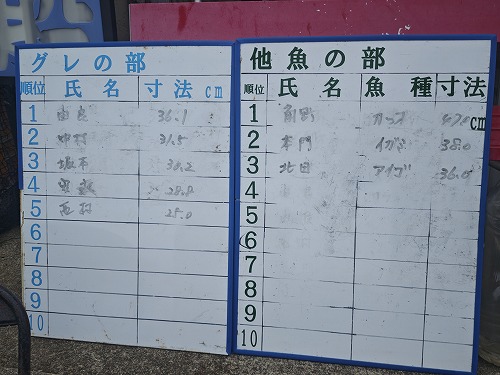 グレの部
順位 氏名 寸法cm
1 由良 36.1
2 中村 31.5
3 坂本 30.2
4 28.8
5 西村 25.0
6
7
8
9
10
他魚の部
順位 氏名 魚種 寸法cm
1 前野
2 本門 イガミ 38.0
3 北田 アイゴ 36.0
4
5
6
7
8
9
10